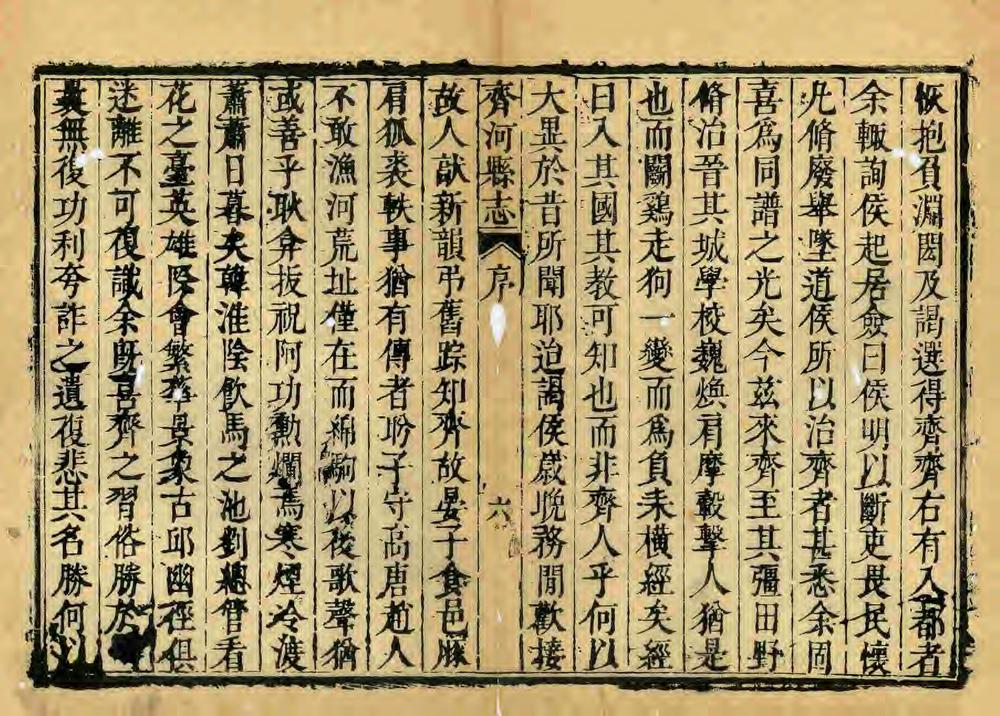 恢抱負淵閎及謁選得齊齊右有入都者
余輙詢侯起居僉曰侯明以斷吏畏民懷
凢脩廢舉墜道侯所以治齊者甚悉余固
喜爲同譜之光矣今茲來齊至其彊田野
脩治晉其城學校巍煥肩摩轂擊人猶是
也而鬬鷄走狗一變而爲負耒橫經矣經
曰入其國其教可知也而非齊人乎何以
大異於昔所聞耶迨謁侯嵗晚務閒歡接
齊河縣志 序 六
故人歃新韻弔舊踪知齊故晏子食邑豚
肩狐裘軼事猶有傳者昐子守高唐趙人
不敢漁河荒址僅在而綿駒以後歌聲猶
或善乎耿弇拔祝阿功勲爛焉寒煙冷渡
蕭蕭日暮矣韓淮陰飲馬之池劉總管看
花之臺英雄際會繁華景象古邱幽徑俱
迷離不可復識余旣喜齊之習俗勝於
曩無復功利夸詐之遺復悲其名勝何